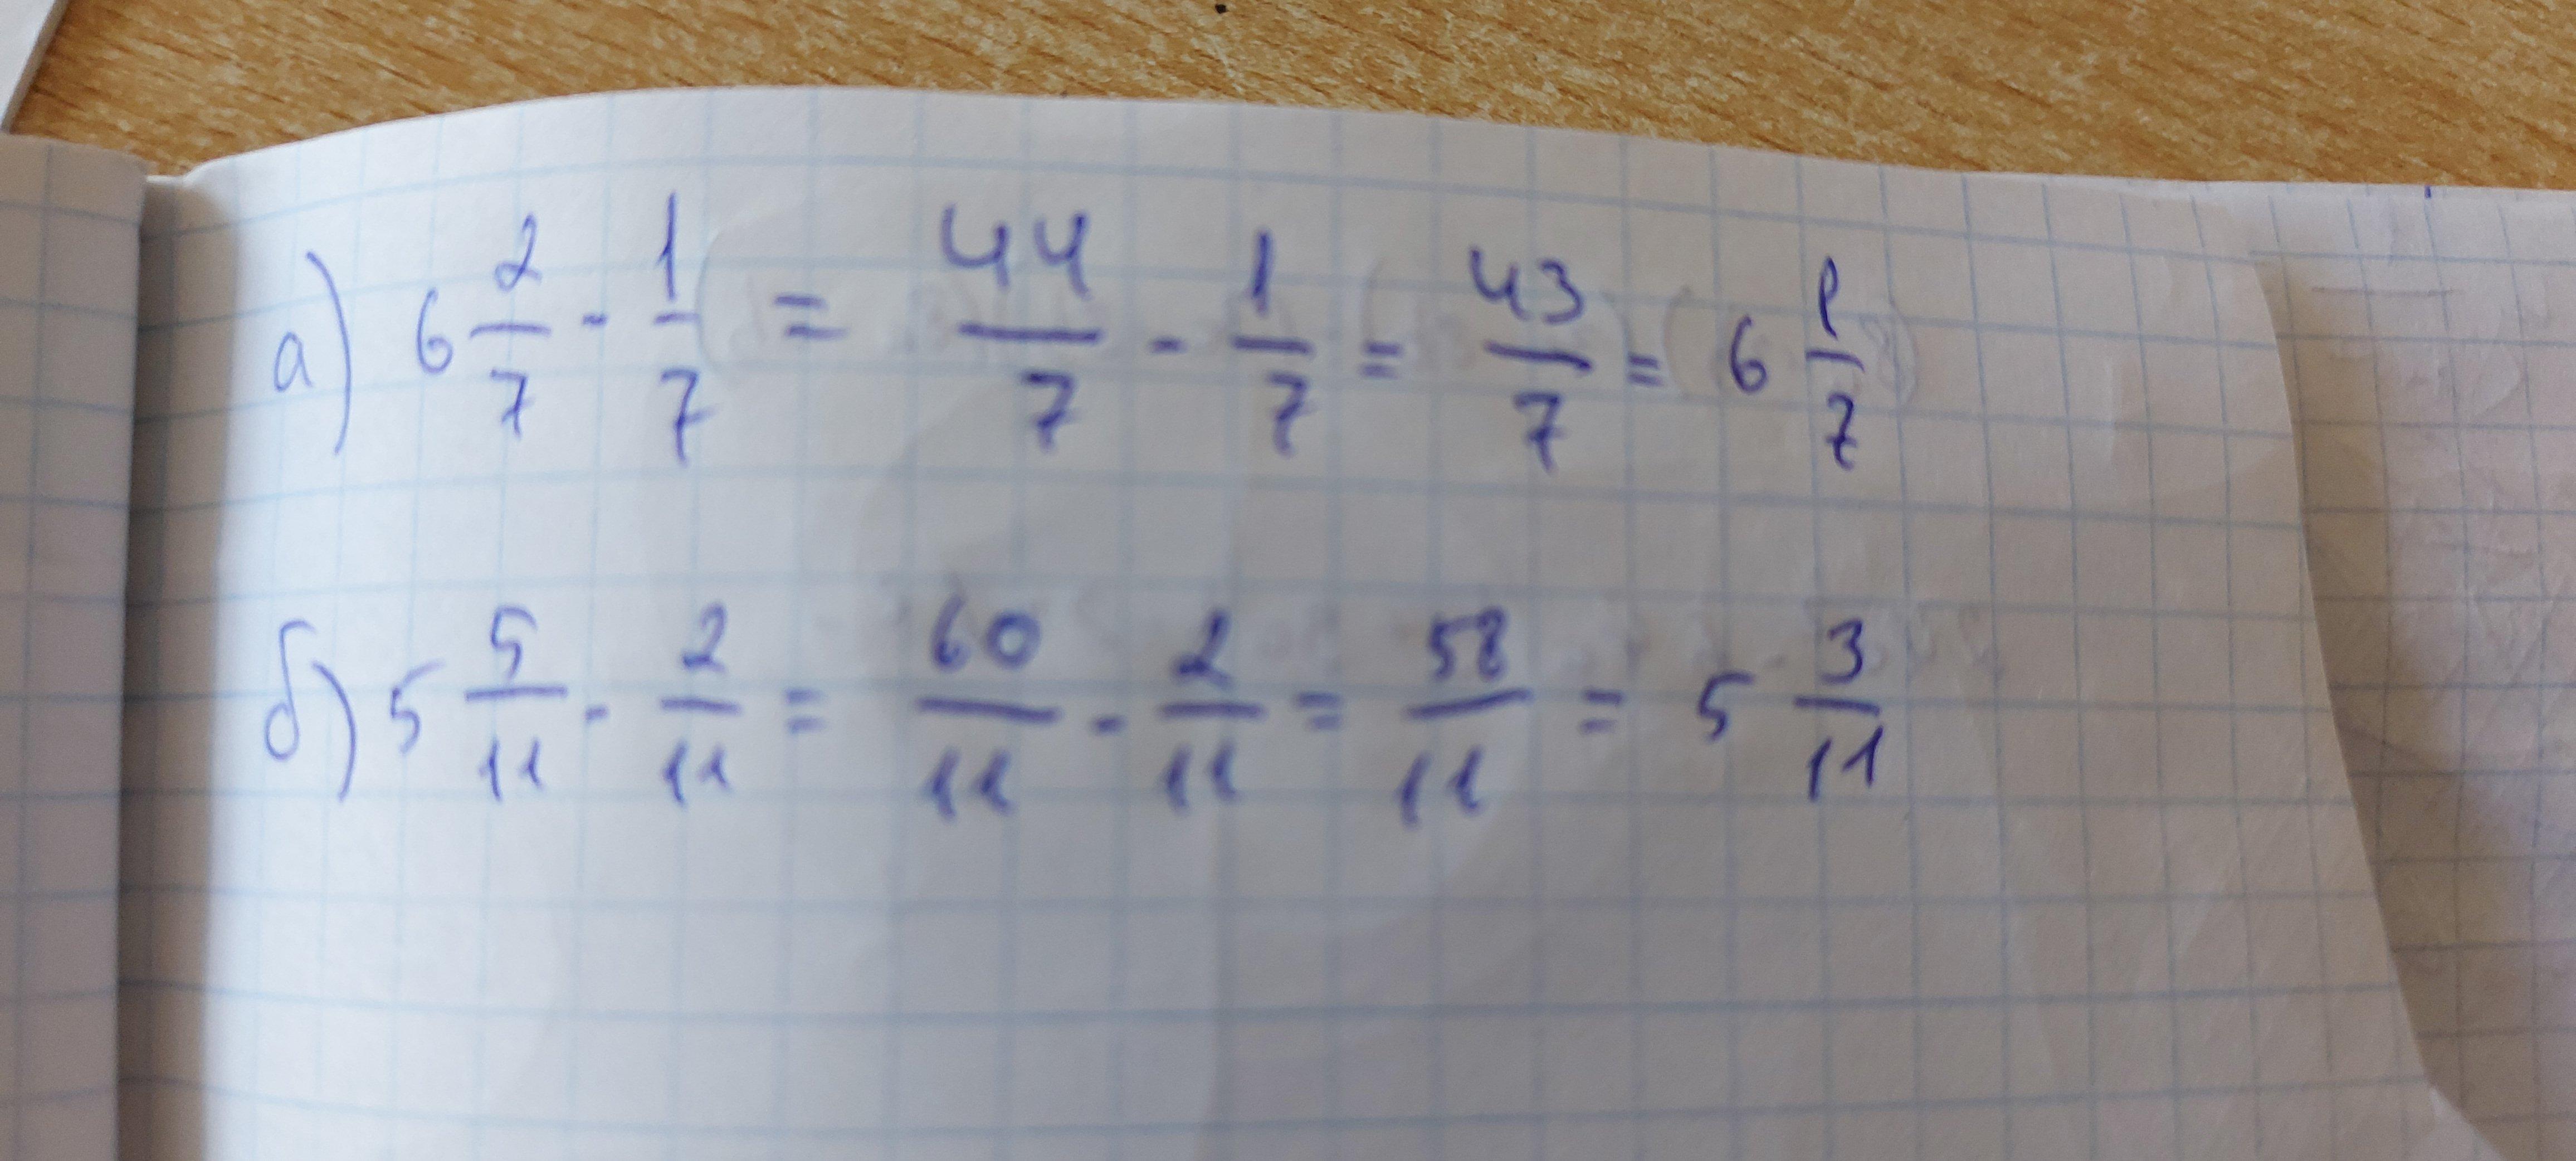 а) 6 2/7 - 1/7 = 44/7 - 1/7 = 43/7 = 6 1/7
б) 5 5/11 - 2/11 = 60/11 - 2/11 = 58/11 = 5 3/11